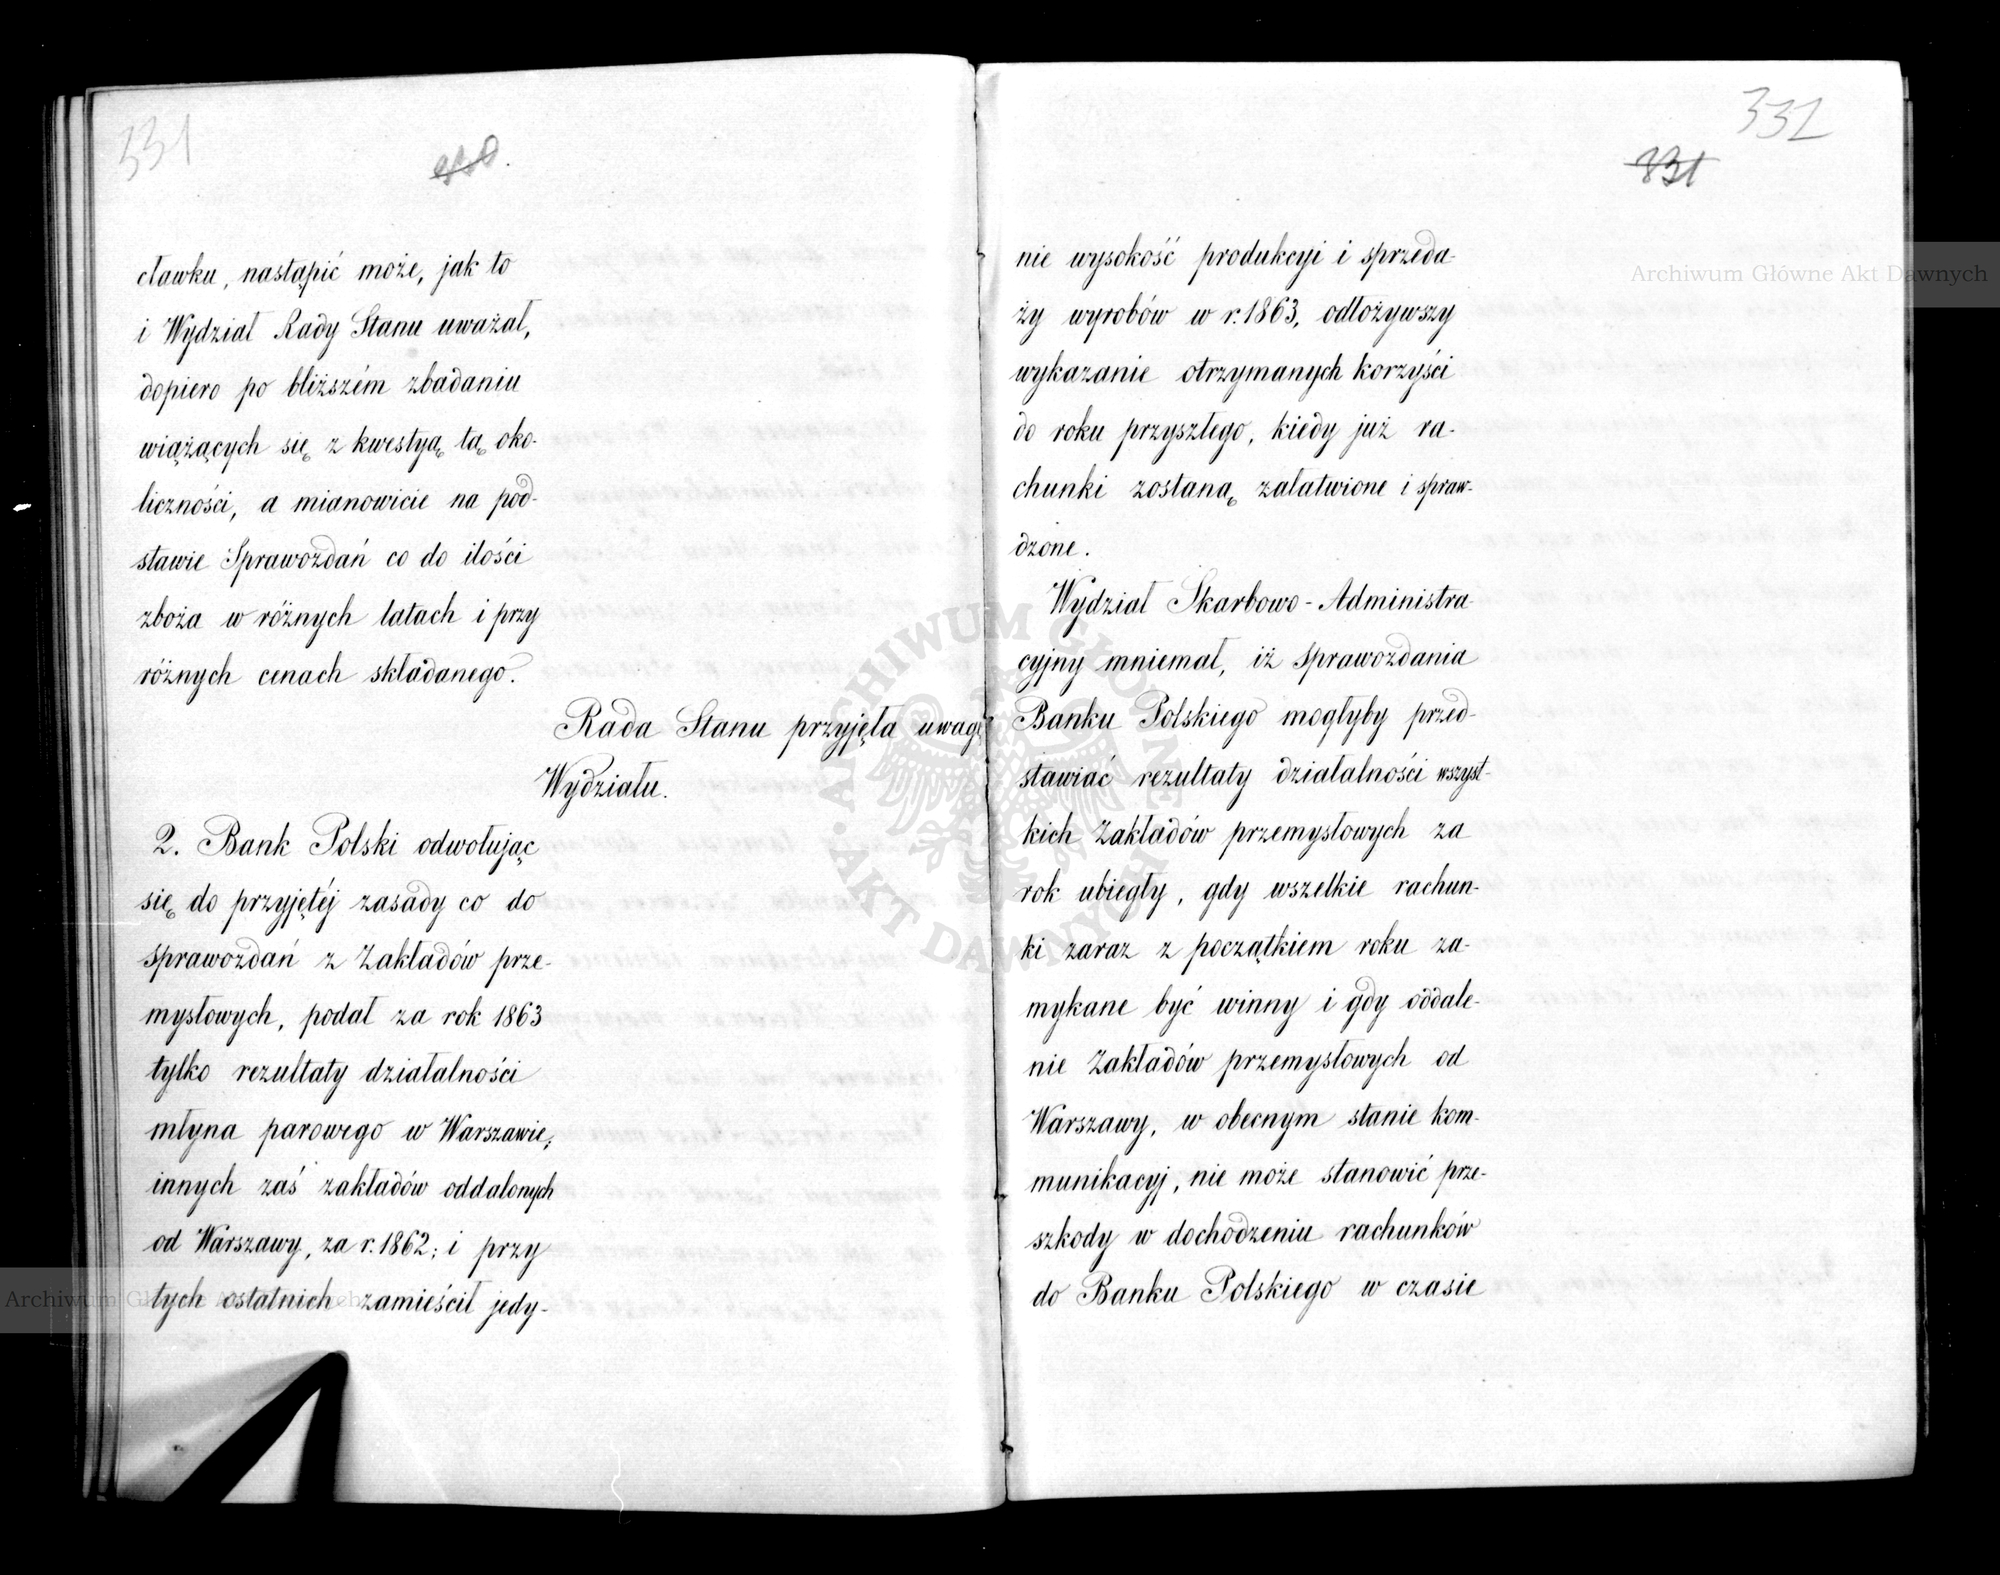 331
cławku, nastąpić może, jak to
i Wydział Rady Stanu uważał,
dopiero po bliższém zbadaniu
wiążących się z kwestyą tą oko-
liczności, a mianowicie na pod-
stawie Sprawozdań co do ilości
zboża w różnych latach i przy
różnych cenach składanego.
Rada Stanu przyjęła uwagę
Wydziału.
2. Bank Polski odwołując
się do przyjętéj zasady co do
sprawozdań z Zakładów prze-
mysłowych, podał za rok 1863
tylko rezultaty działalności
młyna parowego w Warszawie;
innych zaś zakładów oddalonych
od Warszawy, za r. 1862; i przy
tych ostatnich zamieścił jedy-
332
331
nie wysokość produkcyi i sprzeda-
ży wyrobów w r. 1863, odłożywszy
wykazanie otrzymanych korzyści
do roku przyszłego, kiedy już ra-
chunki zostaną załatwione i spraw-
dzone.
Wydział Skarbowo-Administra-
cyjny mniemał, iż sprawozdania
Banku Polskiego mogłyby przed-
stawiać rezultaty działalności wszyst-
kich Zakładów przemysłowych za
rok ubiegły, gdy wszelkie rachun-
ki zaraz z początkiem roku za-
mykane być winny i gdy oddale-
nie Zakładów przemysłowych od
Warszawy, w obecnym stanie kom-
munikacyj, nie może stanowić prze-
szkody w dochodzeniu rachunków
do Banku Polskiego w czasie
Archiwum Główne Akt Dawnych
ARCHIWUM GŁÓWNE AKT DAWNYCH